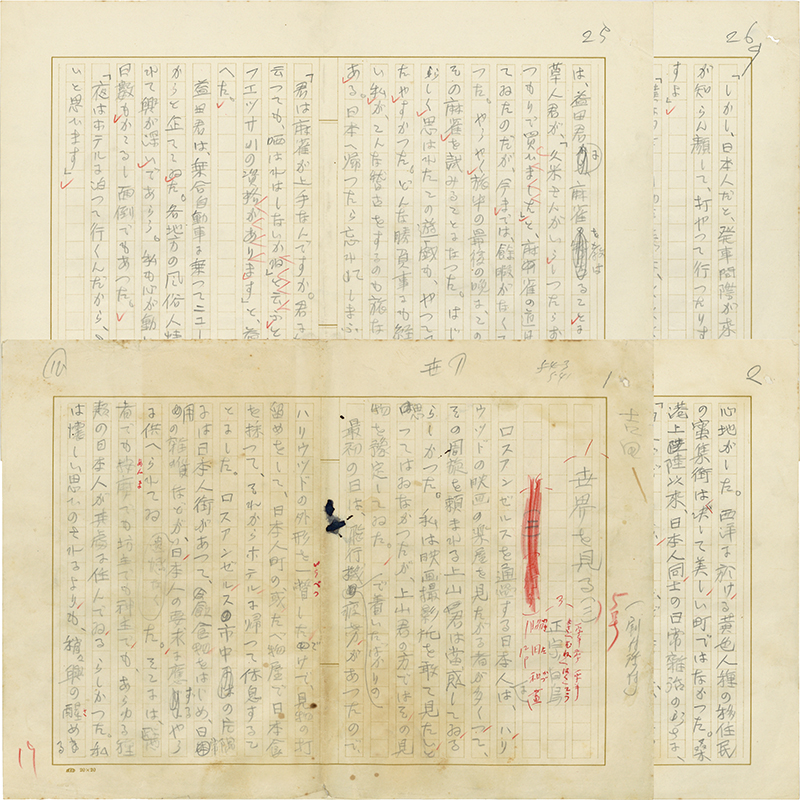 25
は、益田君に麻雀を教はることは
草人君が、「久米さんがいらしつたらお
つもりで買ひました」と、麻雀の道
てゐたのだが、今までは、餘暇がなくて
つた。やうやく旅中の最後の晩に、その
その麻雀を試みることになつた。はじ
らしく思はれたこの遊戯も、やつて
たやすかつた。どんな勝負事にも経
い私が、こんな稽古をするのも旅な
ある。日本へ帰つたら忘れてしまふ
「君は麻雀が上手なんですか。君なん
云つても、哂はれはしないかね」と云ふと
フエツサーの資格があります」と、益
へた。
益田君は乗合自動車に乗つてニユー
からと企ててゐた。各地方の風俗人情
れて興が深いであらう。私も心が動い
日数もかゝるし面倒でもあつた。
「夜はホテルに泊つて行くんだから、
いと思ひます」
26
「しかし、日本人だと、発車間際が来
が知らん顔して、打やつて行つたりす
すよ」
1
吉田
世界を見る(三)
正宗白鳥
ロスアンゼルスを通過する日本人は、ハリ
ウツドの映画の楽屋を見たがる者が多くつて、
その周旋を頼まれる上山君は當惑してゐる
らしかつた。私は映画撮影地を敢て見たいと
思つてはゐなかつたが、上山君の方ではその見
物を豫定してゐた。
で着いたばかりの
最初の日は、旅行疲労があつたので、
ハリウツドの外形を一瞥しただけで、見物の打
留めをして、日本人町の或たべ物屋で日本食
を採つて、それからホテルに帰つて休息するこ
とにした。ロスアンゼルスの市中の片端
には日本人街があつて、飲食物をはじめ、日
用の などが、日本人の要求に應ずるやう
に供へられてゐた。そこには、
者でも按摩でも坊主でも でも、あらゆる種
類の日本人が に住んでゐるらしかつた。私
は懐しい思ひのされるよりも、稍々興の醒める
17
2
心地がした。西洋に於ける黄色人種の移住民
の密集街は決して美しい町ではなかつた。桑
港上陸以来、日本人同士の日常雑話の